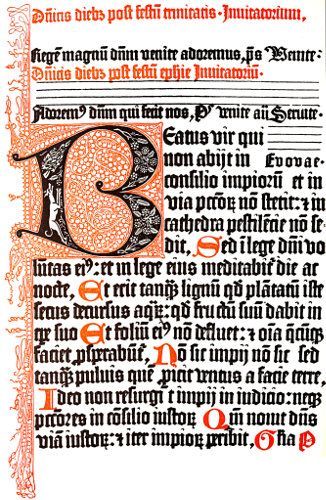 Dñicis diebꝫ post festũ trinitatis. Inuitatorium,
Regẽ magnũ dñm venite adoremus, p̃s Uenite.
Dñicis diebꝫ post festũ ephie Inuitatoriũ.
Adoremꝰ dũm qui fecit nos, Pꝰ venite aũ Seruite.
Beatus vir qui
non abijt in Evovae
consilio impiorũ et in
via pcc̃oꝝ nõ stetit: ⁊ in
cathedra pestilẽcie nõ se-
dit, Sed ĩ lege dñi vo
lũtas eiꝰ: et in lege eius meditabit̃ die ac
nocte, Et erit tanqꝫ lignũ qd̃ plãtatũ iste
secus decursus aqꝝ: qd̃ fructũ suũ dabit in
tp̃e suo Et foliũ eiꝰ nõ defluet: ⁊ oĩa q̃cũqꝫ
faciet ꝓsperabũt̃, Nõ sic impij nõ sic sed
tanqꝫ puluis quẽ ꝓicit ventus a facie terre,
Ideo non resurgũt impij in iudicio: neqꝫ
pcc̃ores in cõsilio iustoꝝ Qm̃ nouit dñs
viã iustoꝝ: ⁊ iter impioꝝ peribit, Gl̃ia P